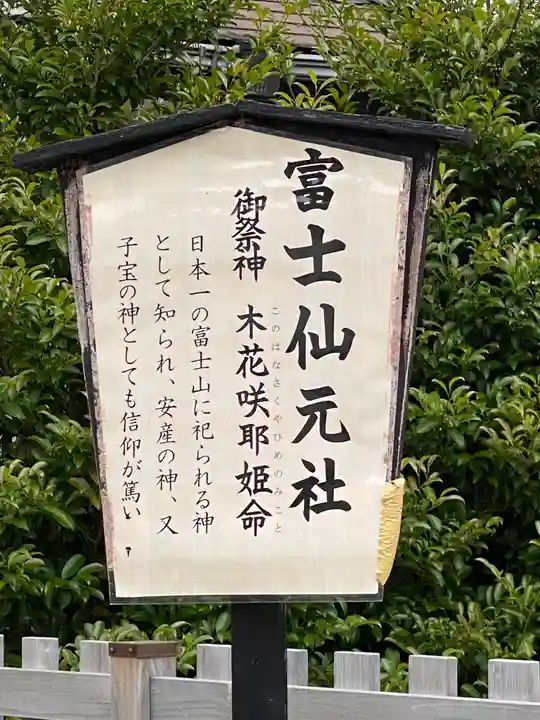 富士仙元社
このはなさくやひめのみこと
御祭神 木花咲耶姫命
日本一の富士山に祀られる神
として知られ、安産の神、又
子宝の神としても信仰が篤い